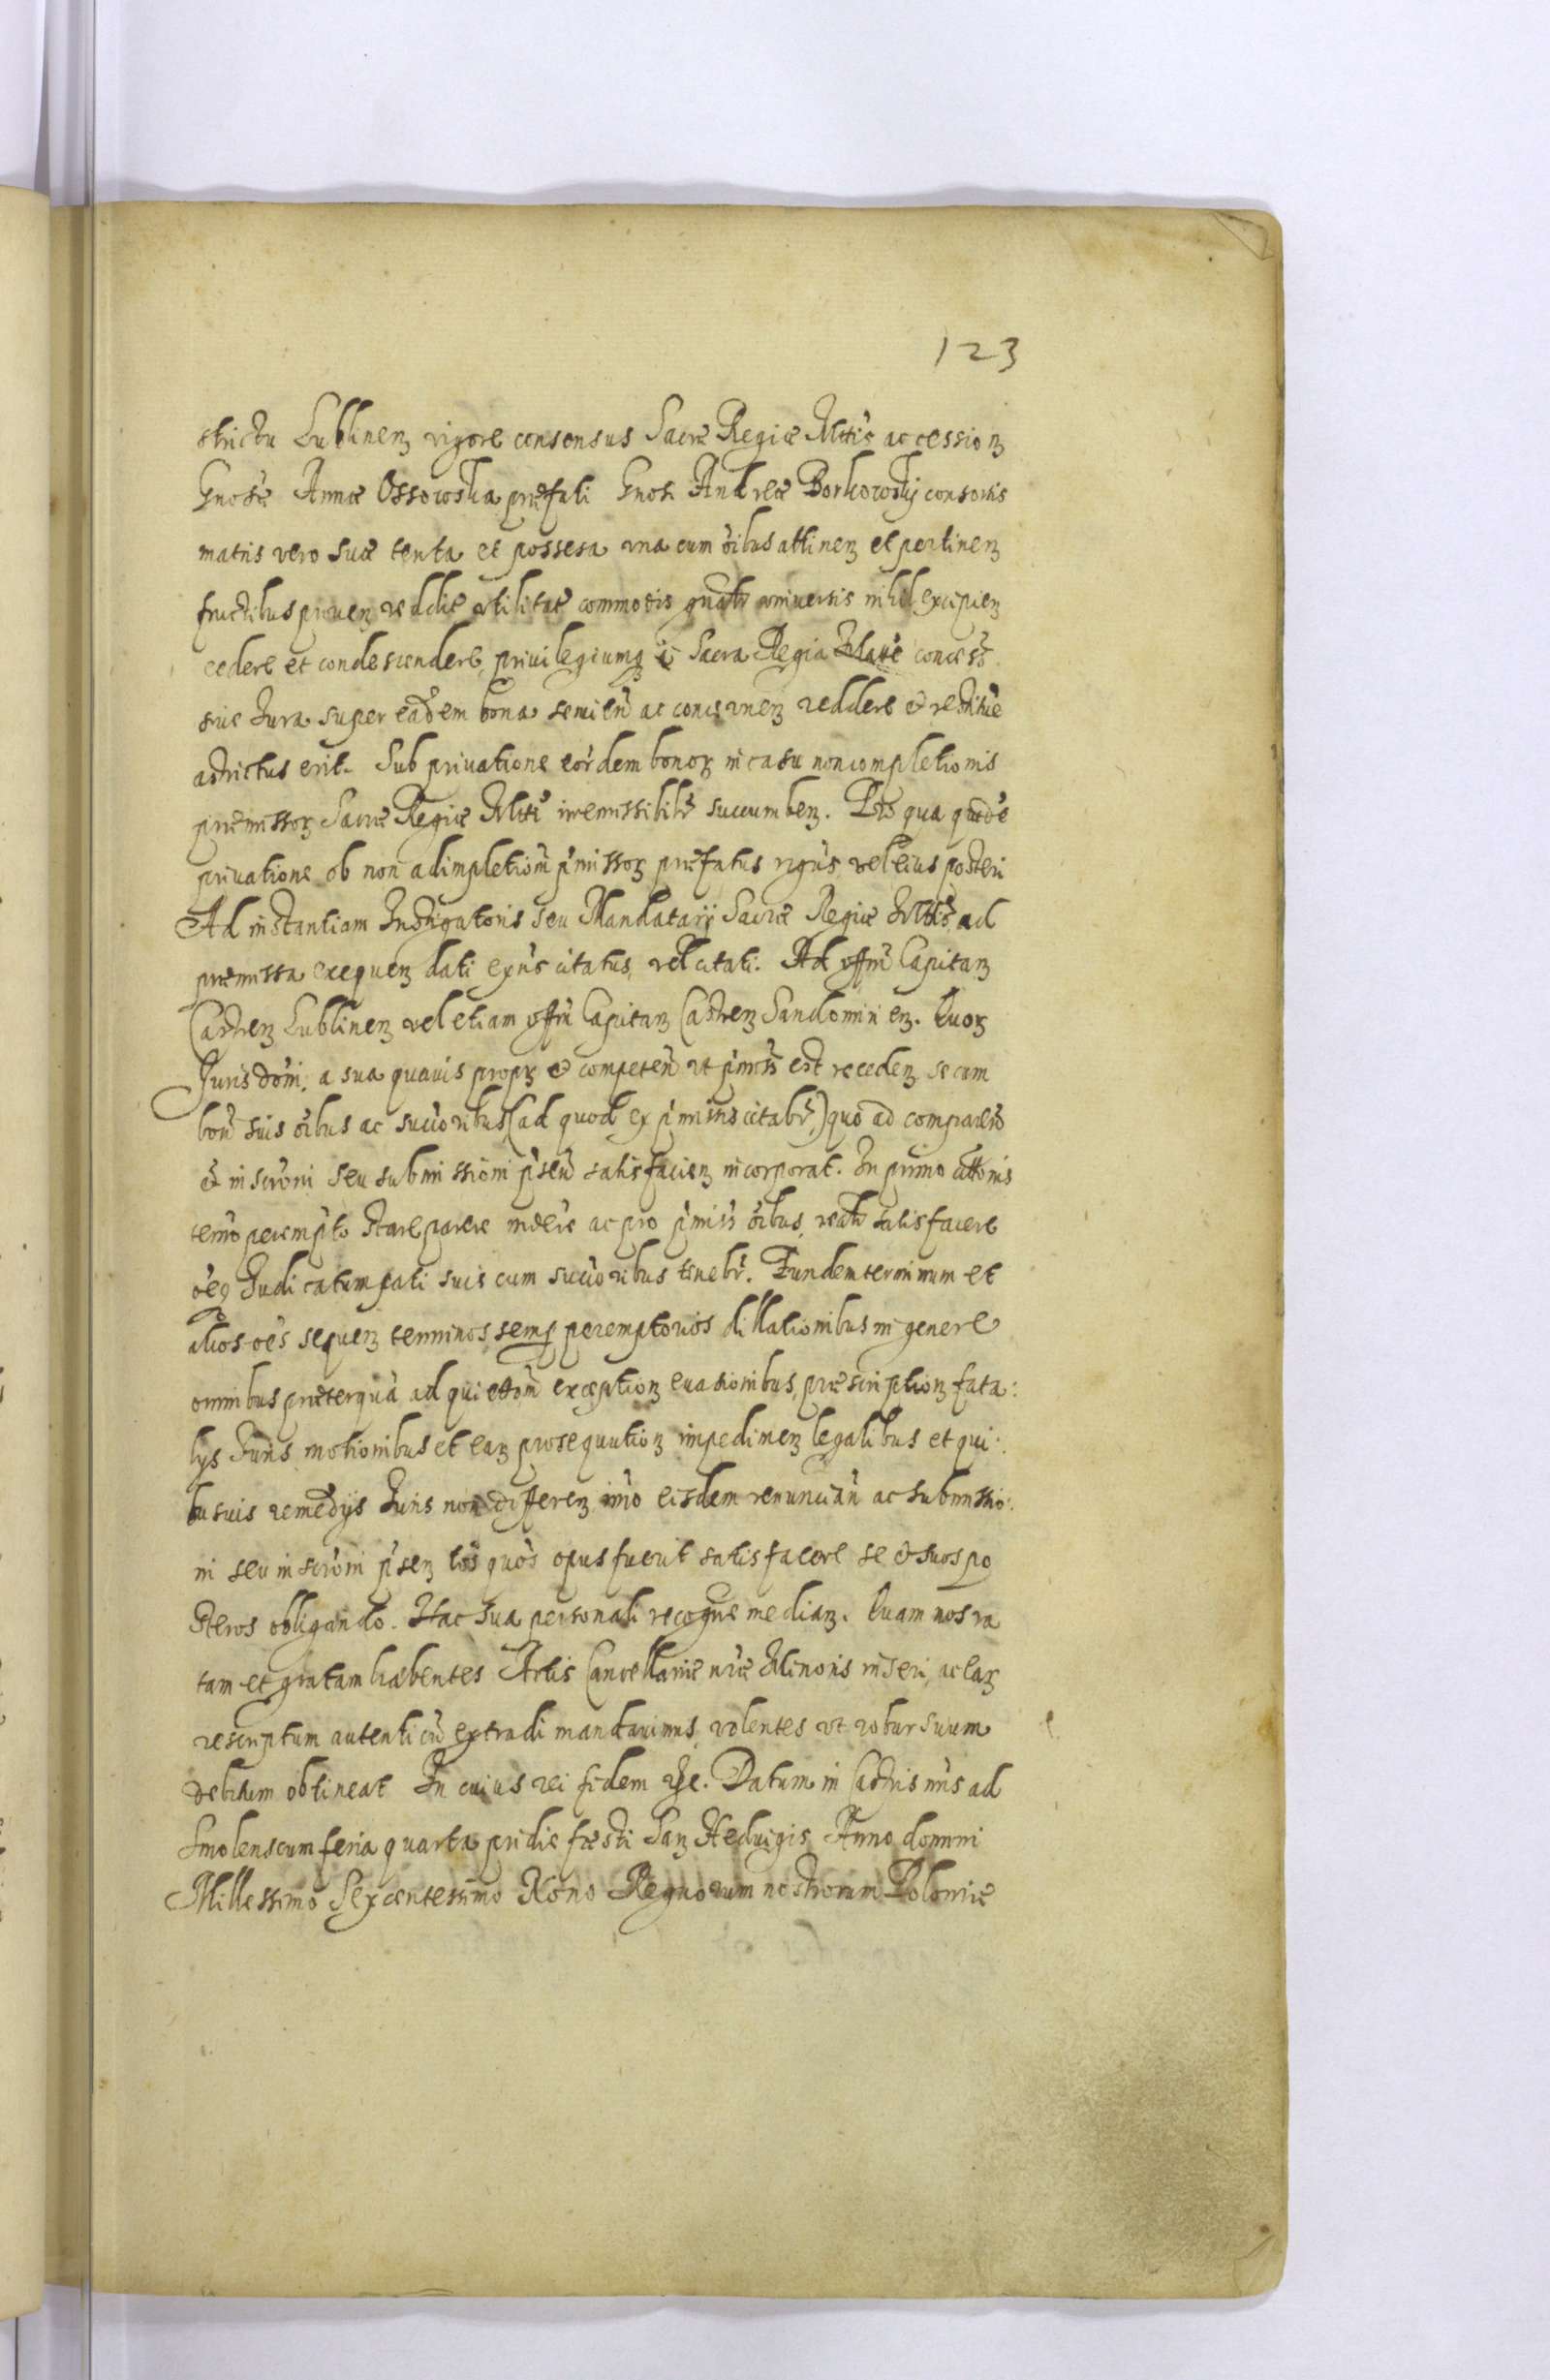 123
strictu Lublinen rigore consensus Sacræ Regiæ Mttis ac cession
Gnosæ Annæ Ossowska præfati Gnosi Andreæ Borkowskÿ consortis
matris vero suæ tenta et possesa vna cum oibus attinen et pertinen
fructibus prouen reddit vtilitat commodis gnalr vniuersis nihil excipien
cedere et condescendere, priuilegiumq Sacra Regia Matte concess
sue Jura super eadem bona seruien ac concernen reddere et restitue
astrictus erit. Sub priuatione eordem bonor in casu non completionis
præmissor Sacræ Regiæ Mtti irremissibilr succumben. Pro qua quide
priuatione ob non adimpletiom pmissor præfatus rgns vel eius posteri
Ad instantiam Instigatoris seu Mandatarÿ Sacræ Regiæ Mttis ad
præmissa exequen dati exns citatus, vel citati. Ad offm Capitan
Castren Lublinen vel etiam offm Capitan Castren Sandomirien. Quor
Jurisdoni, a sua quauis propr et competen vt pmiss est receden se cum
bon suis oibus ac succoribus (ad quod ex pmiss citabr,) quo ad comparen
et inscroni seu submissioni psen satisfacien incorporat. In primo cittonis
termo perempto stare parere indere ac pro pmiss oibus, realr satisfacere
oeq Judicatum pati suis cum succoribus tenebr. Eundem terminum et
alios oes sequen terminos semp peremptorios dillationibus in genere
omnibus præterqua ad quiettom exception euasionibus, præscription fata:
lÿs Juris motionibus et ear prosequution impedimen legalibus et qui:
busuis remedÿs Juris non differen imo eisdem renuncian ac submissio:
ni seu inscroni psen tos quos opus fuerit satisfacere se et suos po
steros obligando. Hac sua personali recogne median. Quam nos ra
tam et gratam habentes Actis Cancellariæ nræ Minoris inseri, ac ear
rescriptum autenticu extradi mandauimus, volentes vt robur suum
debitum obtineat In cuius rei fidem Datum in Castris nris ad
Smolenscum feria quarta pridie fæsti San Heduigis Anno domini
Millessimo Sexcentessimo Nono Regnorum nostrorum Poloniæ